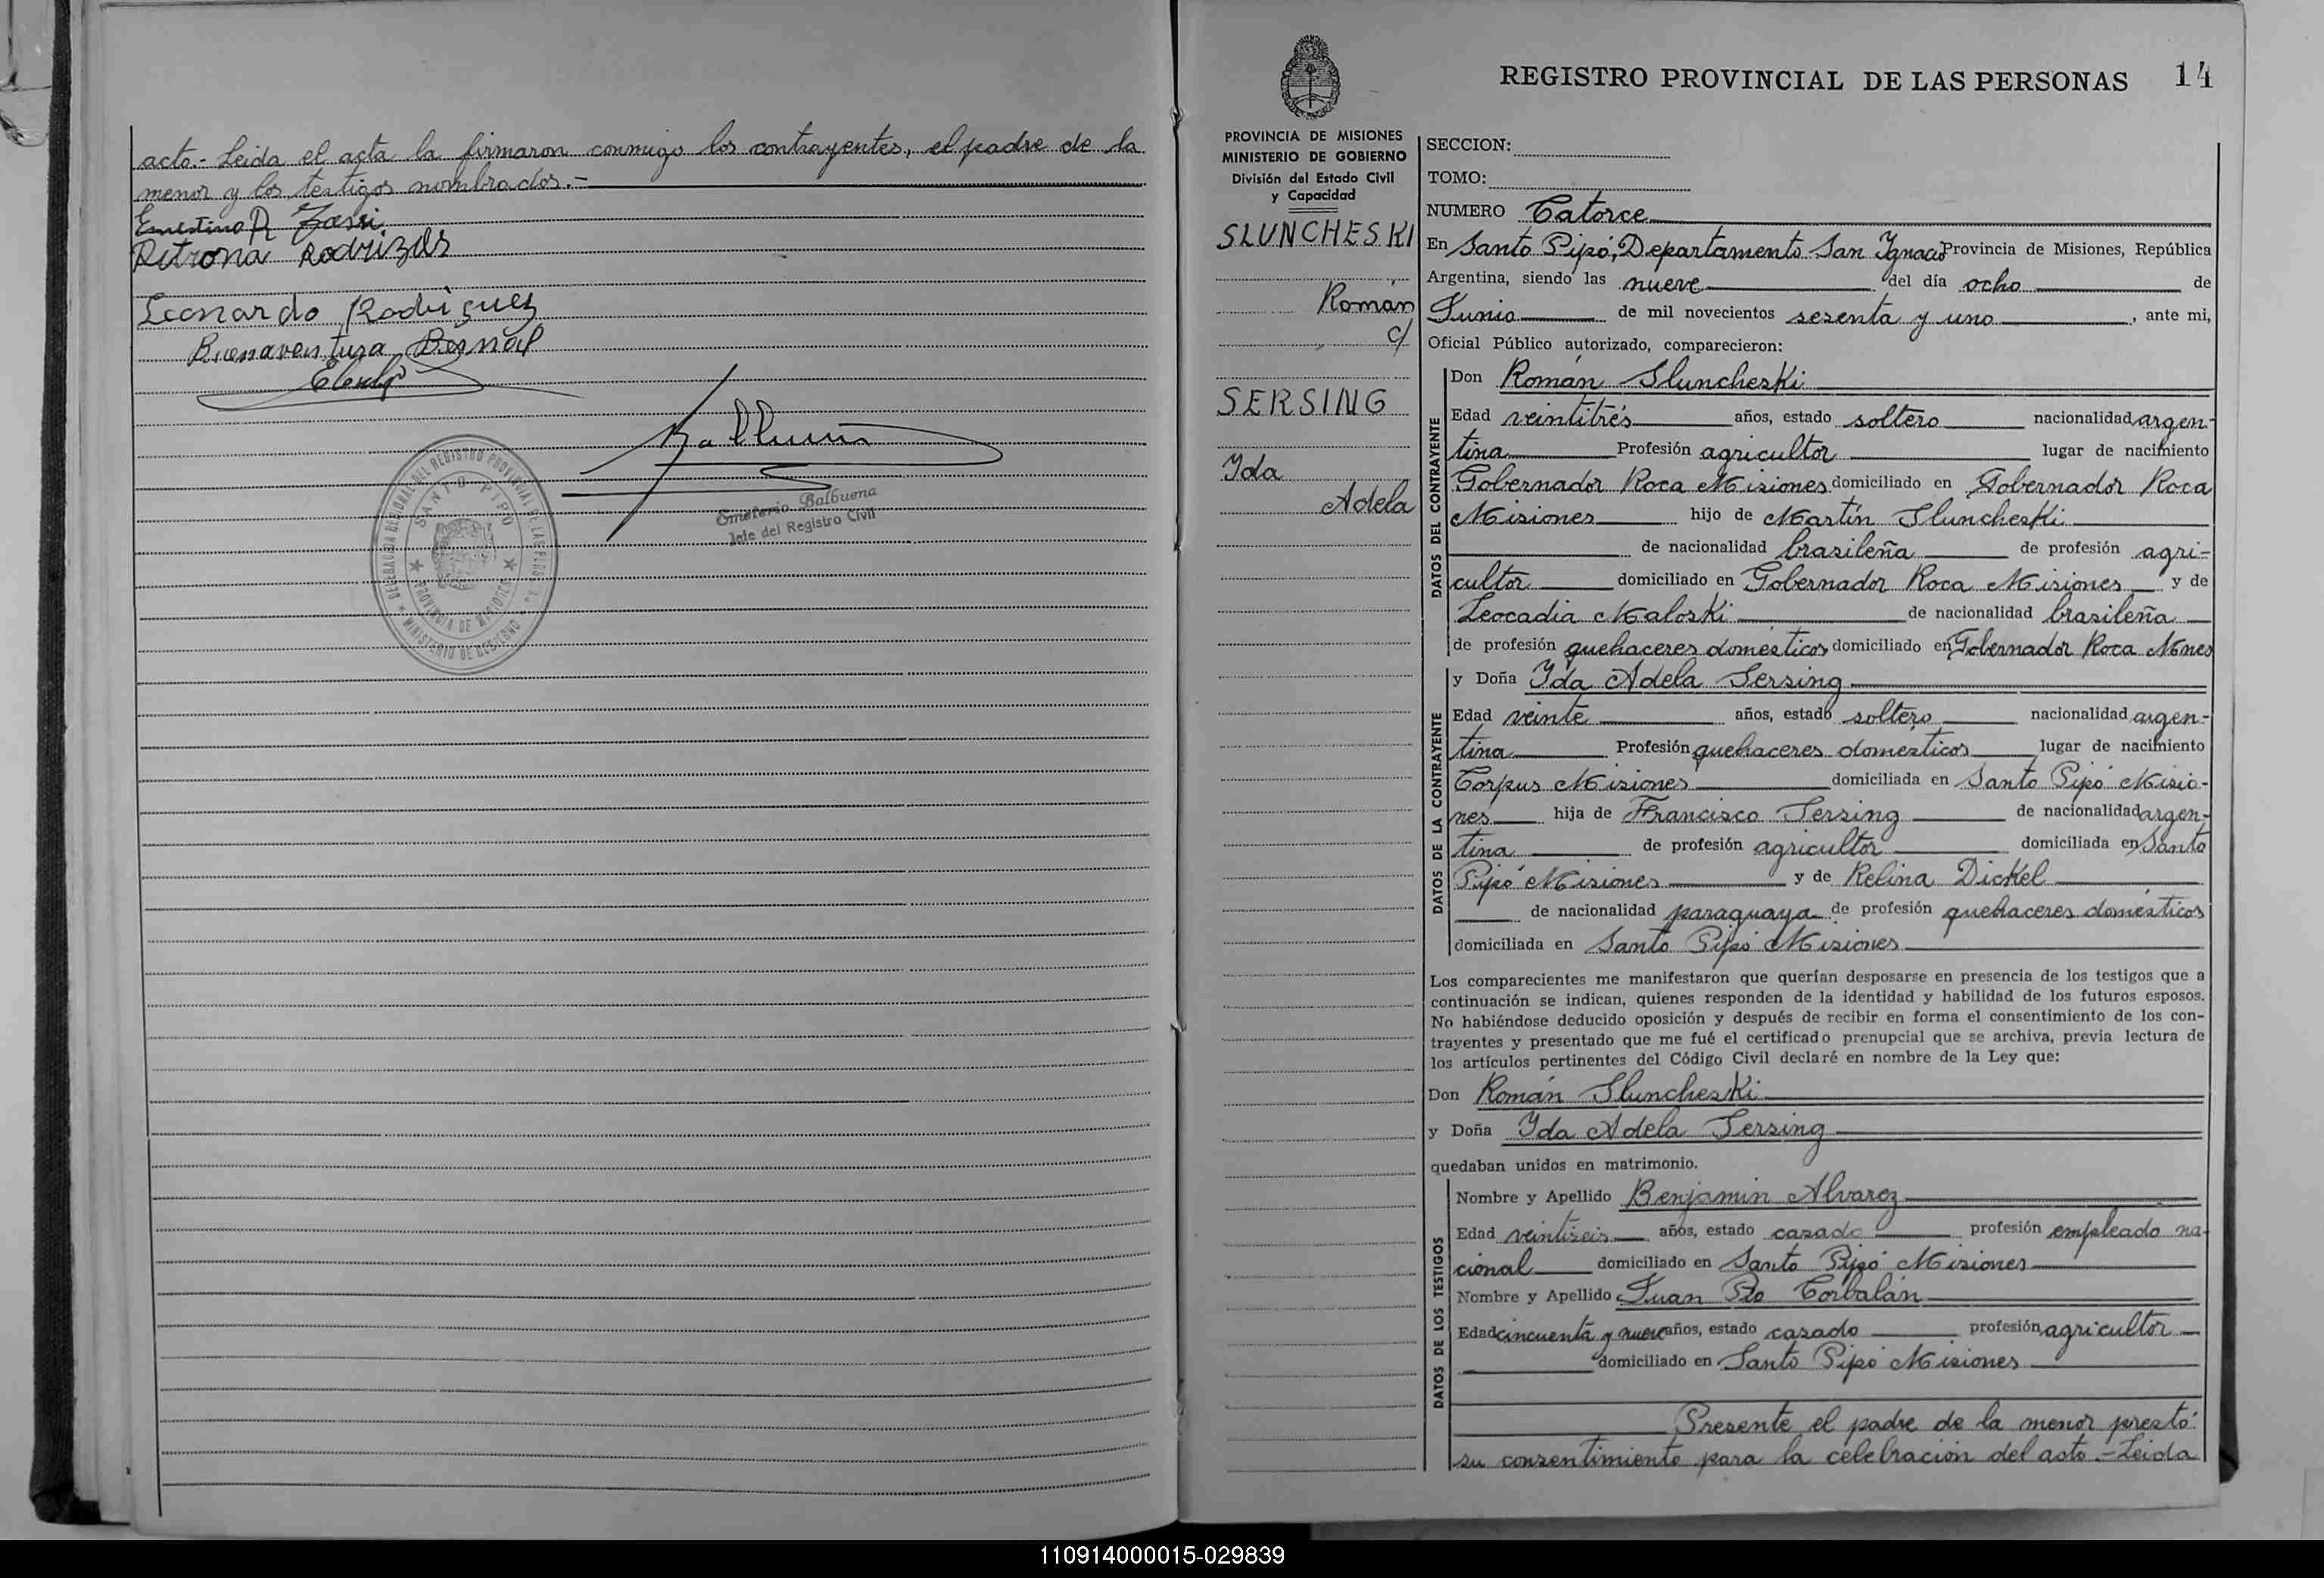 acto.- Leida el acta la firmaron conmigo los contrayentes, el padre de la
menor y los testigos nombrados.-
Ernestino R
Petrona Rodrizgs
Leonardo Rodriguez
Buenaventura Bernal
Emeterio Balbuena
Jefe del Registro Civil
DELEGACION REGIONAL DEL REGISTRO PROVINCIAL DE LAS PERSONAS
SANTO PIPO
PROVINCIA DE MISIONES
MINISTERIO DE GOBIERNO
REGISTRO PROVINCIAL DE LAS PERSONAS 14
PROVINCIA DE MISIONES
MINISTERIO DE GOBIERNO
División del Estado Civil
y Capacidad
SLUNCHESKI
Román
c/
SERSING
Yda
Adela
SECCION:
TOMO:
NUMERO Catorce
En Santo Pipó, Departamento San Ygnacio Provincia de Misiones, República
Argentina, siendo las nueve del día ocho de
Junio de mil novecientos sesenta y uno, ante mi,
Oficial Público autorizado, comparecieron:
DATOS DEL CONTRAYENTE
Don Román Sluncheski
Edad veintitrés años, estado soltero nacionalidad argen-
tina Profesión agricultor lugar de nacimiento
Gobernador Roca Misiones domiciliado en Gobernador Roca
Misiones hijo de Martín Sluncheski
de nacionalidad brasileña de profesión agri-
cultor domiciliado en Gobernador Roca Misiones y de
Leocadia Maloski de nacionalidad brasileña
de profesión quehaceres domesticos domiciliado en Gobernador Roca Mnes
DATOS DE LA CONTRAYENTE
y Doña Yda Adela Sersing
Edad veinte años, estado soltero nacionalidad argen-
tina Profesión quehaceres domésticos lugar de nacimiento
Corpus Misiones domiciliada en Santo Pipó Misio-
nes hija de Francisco Sersing de nacionalidad argen-
tina de profesión agricultor domiciliada en Santo
Pipó Misiones y de Relina Dickel
de nacionalidad paraguaya de profesión quehaceres domésticos
domiciliada en Santo Pipó Misiones
Los comparecientes me manifestaron que querían desposarse en presencia de los testigos que a
continuación se indican, quienes responden de la identidad y habilidad de los futuros esposos.
No habiéndose deducido oposición y después de recibir en forma el consentimiento de los con-
trayentes y presentado que me fué el certificado prenupcial que se archiva, previa lectura de
los artículos pertinentes del Código Civil declaré en nombre de la Ley que:
Don Román Sluncheski
y Doña Yda Adela Sersing
quedaban unidos en matrimonio.
DATOS DE LOS TESTIGOS
Nombre y Apellido Benjamin Alvarez
Edad veintiseis años, estado casado profesión empleado na-
cional domiciliado en Santo Pipó Misiones
Nombre y Apellido Juan Pio Corbalán
Edad cincuenta y nueve años, estado casado profesión agricultor
domiciliado en Santo Pipó Misiones
Presente el padre de la menor prestó
su consentimiento para la celebración del acto.- Leida
110914000015-029839